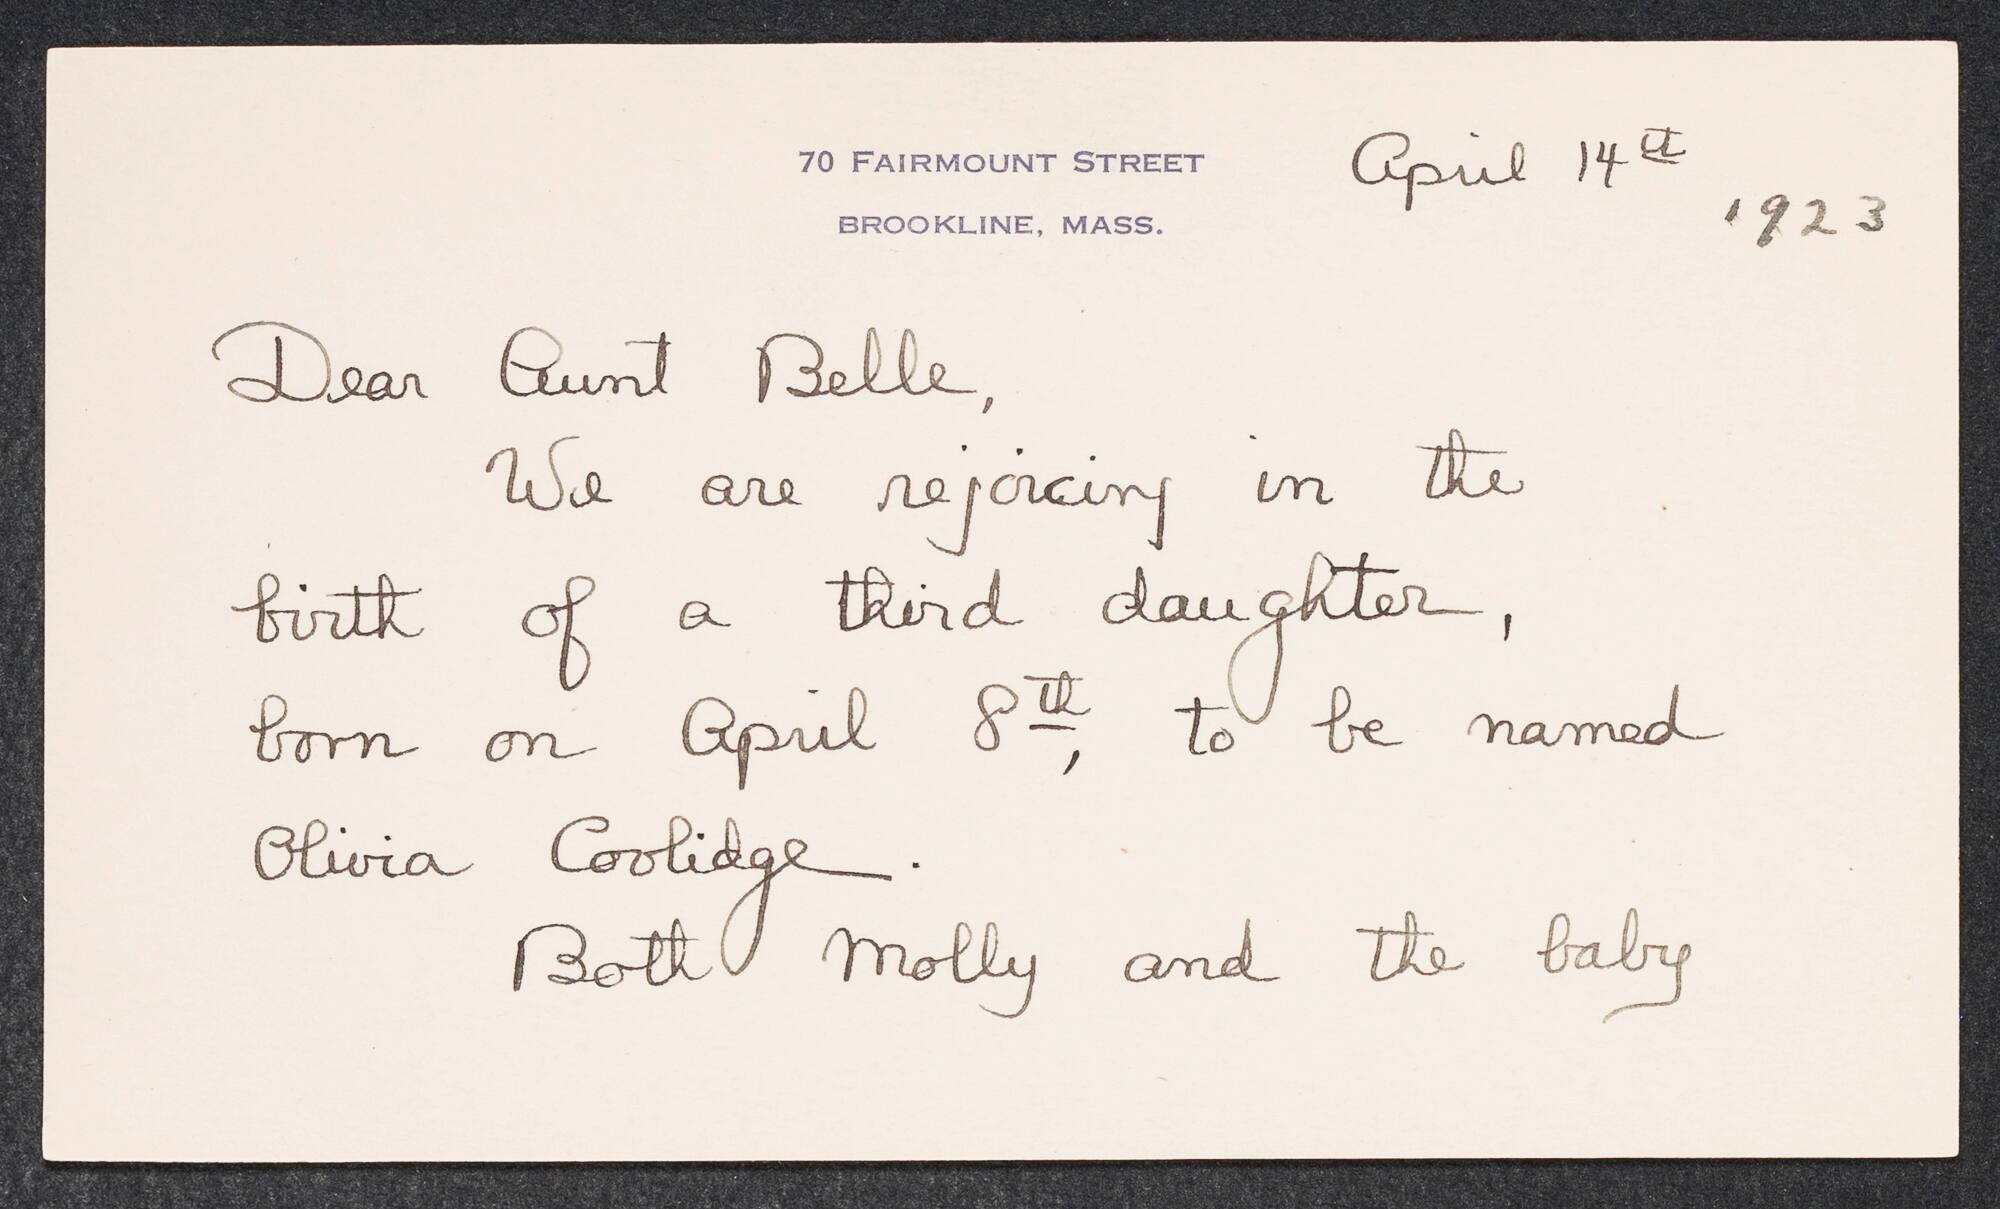 70 FAIRMOUNT STREET
BROOKLINE, MASS.
April 14th
1923
Dear Aunt Belle,
We are rejoicing in the
birth of a third daughter,
born on April 8th, to be named
Olivia Coolidge.
Both Molly and the baby